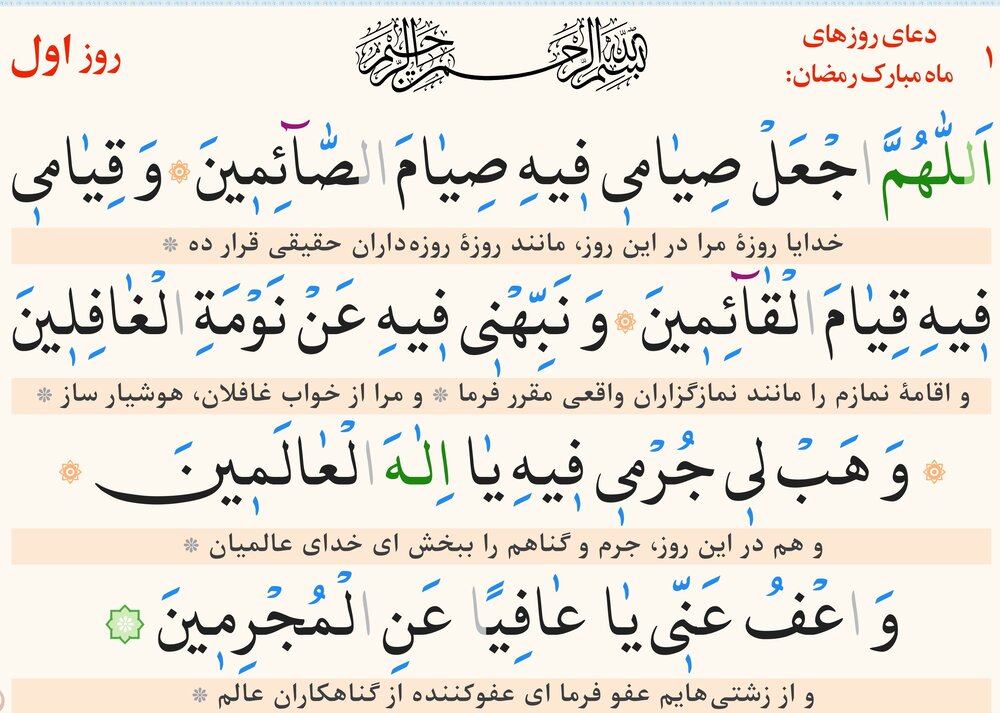 ۱ دعای روزهای
ماه مبارک رمضان:
بسم الله الرحمن الرحیم
روز اول
اَللّٰهُمَّ اجْعَلْ صِیٰامیٖ فیٖهِ صِیٰامَ الصّٰٓائِمیٖنَ ۞ وَ قِیٰامیٖ
خدایا روزهٔ مرا در این روز، مانند روزهٔ روزه‌داران حقیقی قرار ده ❊
فیٖهِ قِیٰامَ الْقٰٓائِمیٖنَ ۞ وَ نَبِّهْنیٖ فیٖهِ عَنْ نَوْمَةِ الْغٰافِلیٖنَ
و اقامهٔ نمازم را مانند نمازگزاران واقعی مقرر فرما ❊ و مرا از خواب غافلان، هوشیار ساز ❊
۞ وَ هَبْ لیٖ جُرْمیٖ فیٖهِ یٰا اِلٰهَ الْعٰالَمیٖنَ ۞
و هم در این روز، جرم و گناهم را ببخش ای خدای عالمیان ❊
وَ اعْفُ عَنّیٖ یٰا عٰافِیًا عَنِ الْمُجْرِمیٖنَ ۞
و از زشتی‌هایم عفو فرما ای عفوکننده از گناهکاران عالم ❊